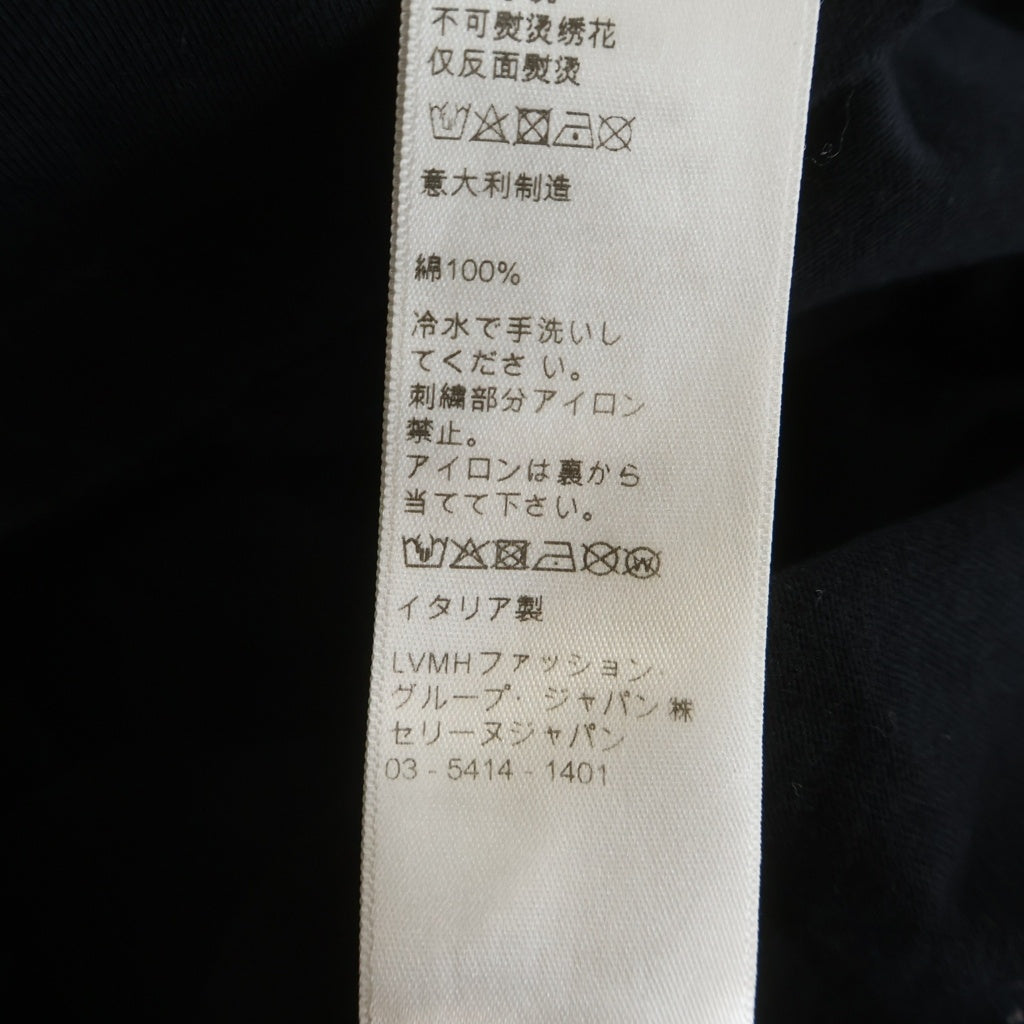 不可熨烫绣花
仅反面熨烫
意大利制造
綿100%
冷水で手洗いし
てください。
刺繍部分アイロン
禁止。
アイロンは裏から
当てて下さい。
W
イタリア製
LVMHファッション・
グループ・ジャパン株
セリーヌジャパン
03 - 5414 - 1401